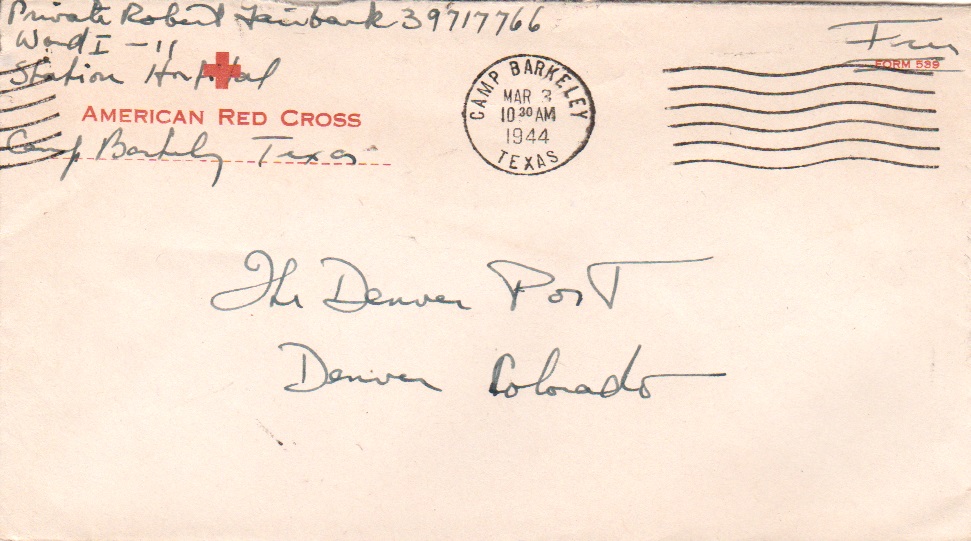 Private Robert Fairbank 39717766
Ward I - 11
Station Hospital
AMERICAN RED CROSS
Camp Barkeley Texas
CAMP BARKELEY
MAR 3
10 30 AM
1944
TEXAS
Free
FORM 539
The Denver Post
Denver Colorado